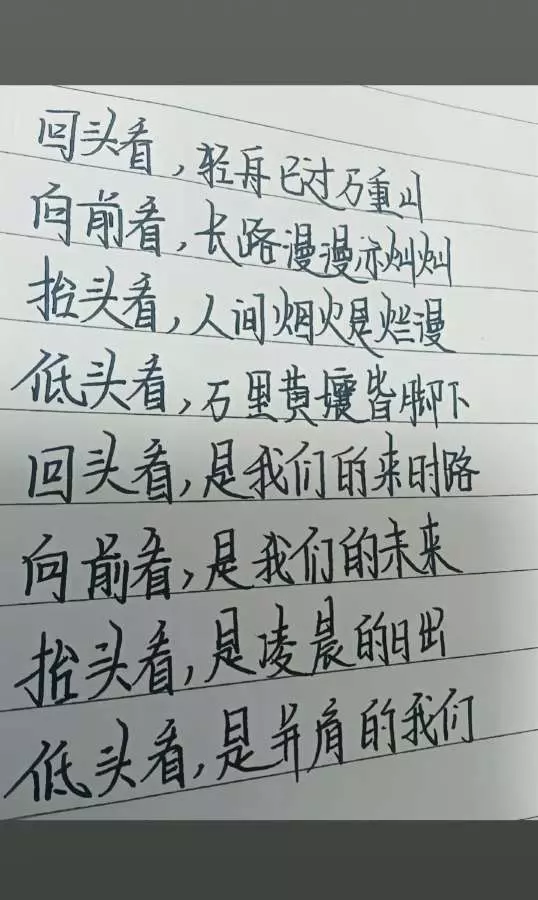 回头看，轻舟已过万重山
向前看，长路漫漫亦灿灿
抬头看，人间烟火是烂漫
低头看，万里黄壤皆脚下
回头看，是我们的来时路
向前看，是我们的未来
抬头看，是凌晨的日出
低头看，是并肩的我们